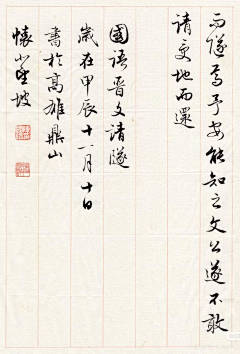 而遂焉予安能知之文公遂不敢
請受地而還
國語晉文請遂
歲在甲辰十一月十日
書於高雄鼎山
懷小坡